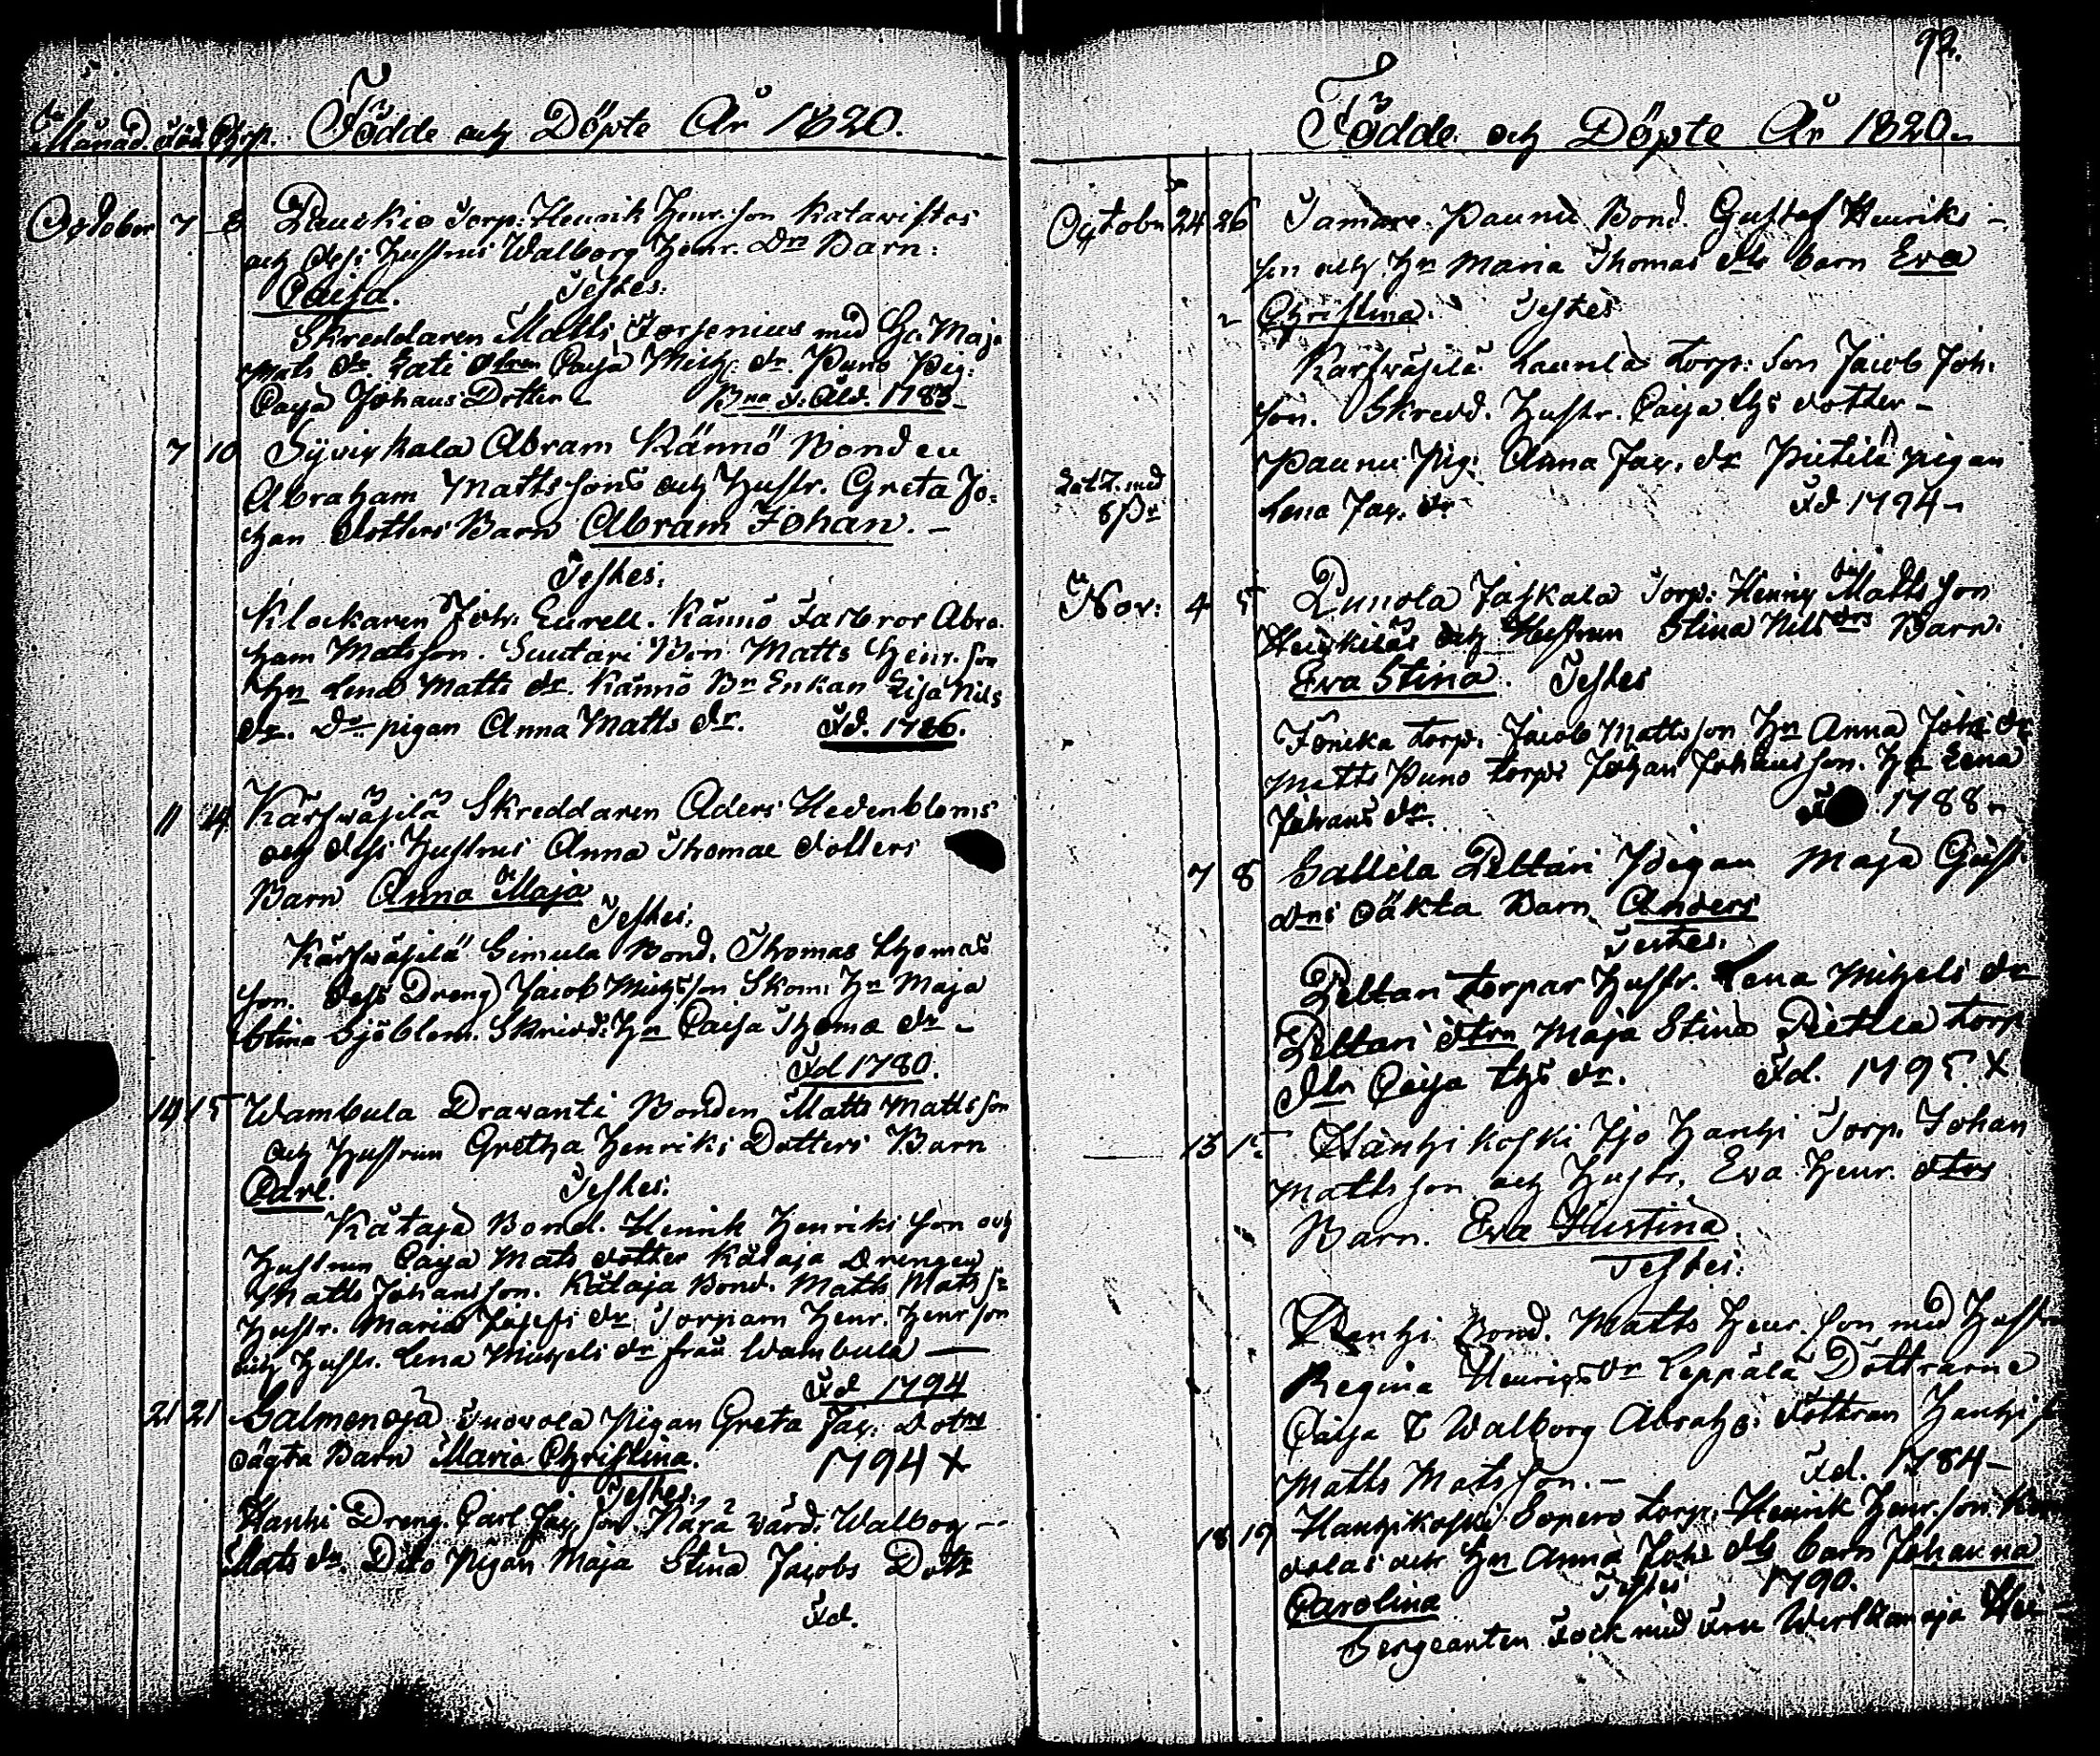 Månad. Född Chrp. Födde och Döpte År 1820.
October 7 8 Pauskio Torp: Henrik Henr. son Katawistos
och dess Hustrus Walborg Henr. Drs Barn:
Caisa. Testes:
Skreddaren Matts Torsenius med Hu. Maja
Mats dr. Lati dtren Caija Mich. dr. Puno Pig:
Caija Johans Dotter Bna f. Åld. 1783
7 10 Abram Kännö Bonden
Abraham Mattssons och Hustr. Greta Jo-
han dotters Barn Abram Johan.
Testes:
Klockaren Joh. Eurell. Kännö Farbror Abra-
ham Matsson. Suutari Bon. Matts Henr. son
Hu Lena Matts dr. Kännö Bn Enkan Lisa Nils
dr. Do pigan Anna Matts dr. Fd. 1786.
11 14 Kärswäsilä Skreddaren Aders Hedenbloms
och dess Hustrus Anna Thomae dotters
Barn Anna Maja
Testes:
Kärswäsilä Simula Bond. Thomas Thomas
son. dess Dreng Jacob Michsson Skom: Hu Maja
Stina Sjöblom. Skredd: Hu Caisa Thomæ dr
Fd 1780.
14 15 Wambula Dravanti Bonden Matts Matsson
och Hustrun Gretha Henriks Dotters Barn
Carl. Testes:
Kätaja Bond. Henrik Henriks son och
Hustrun Caija Mats dotter Kätaja Drengen
Matts Johansson. Kätaja Bond. Matts Mats sn
Hustr. Maria Josefs dr Torparn Henr. Henr son
och Hustr. Lena Michels dr från Wambula
Fd 1794
21 21 Salmenoja Pigan Greta Jac. Dotrs
oägta Barn Maria Christina. 1794 X
Testes:
Hanhi Dreng. Carl Jac. son Närä värd. Walborg
Mats dr. Dito Pigan Maja Stina Jacobs Dotr
Fd.
92.
Födde och Döpte År 1820.
October 24 26 Tamare Paunu Bond. Gustaf Henriks
son och Hu Maria Thomas dtr barn Eva
Christina. Testes
Karswäsilä Laurila torp: son Jacob Joh.
son. Skredd. Hustr. Caija Ths dotter
Paunu Pig: Anna Jac. dr Pietilä pigan
Lena Jac. dr Fd 1794
Nov: 4 5 Punola Jaskala Torp: Henric Mattsson
Heickiläs och Hustrun Stina Nils drs Barn.
Eva Stina. Testes
Fönika torp. Jacob Mattsson Hu Anna Joh: dr
Matts Puno torp: Johan Johansson. Hu Lena
Johans dr. 1788
7 8 Sallila Peltari Pigan Maja Gust.
drs oäkta Barn Anders
Testes:
Peltari torpar Hustr. Lena Michels dr
Peltari dtrn Maja Stina Pietila torp
dtr Caija Ths dr. Fd. 1795 X
13 15 Hanhikoski Hanhi Torp. Johan
Mattsson och Hustr. Eva Henr. dtrs
Barn. Eva Justina
Testes:
Hanhi Bond. Matts Henr. son med Hustru
Regina Henrics dr Leppälä Döttrarne
Caija & Walborg Abrah: döttran Hanhi
Matts Matsson. Fd. 1784
18 19 Hanhikoski Torp. Henrik Henr. son
och Hu Anna Joh: dtr barn Johanna
Carolina Testes 1790.
Sergeanten Fock med Fru